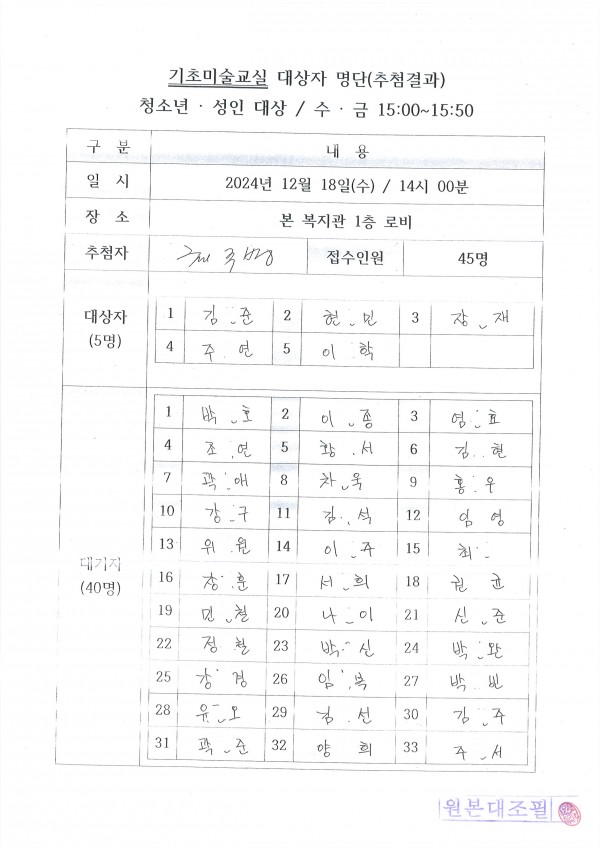 기초미술교실 대상자 명단(추첨결과)
청소년 · 성인 대상 / 수 · 금 15:00~15:50
구 분 내 용
일 시 2024년 12월 18일(수) / 14시 00분
장 소 본 복지관 1층 로비
추첨자 접수인원 45명
대상자
(5명)
1 김 준 2 현 민 3 장 재
4 주 연 5 이 학
대기자
(40명)
1 박 호 2 이 종 3 엄 효
4 조 연 5 황 서 6 김 현
7 곽 애 8 차 욱 9 홍 우
10 강 구 11 김 석 12 임 영
13 위 원 14 이 주 15 최
16 장 훈 17 서 희 18 권 균
19 민 철 20 나 이 21 신 준
22 정 철 23 박 신 24 박 완
25 강 경 26 임 복 27 박 빈
28 윤 오 29 김 선 30 김 주
31 곽 준 32 양 희 33 주 서
원본대조필